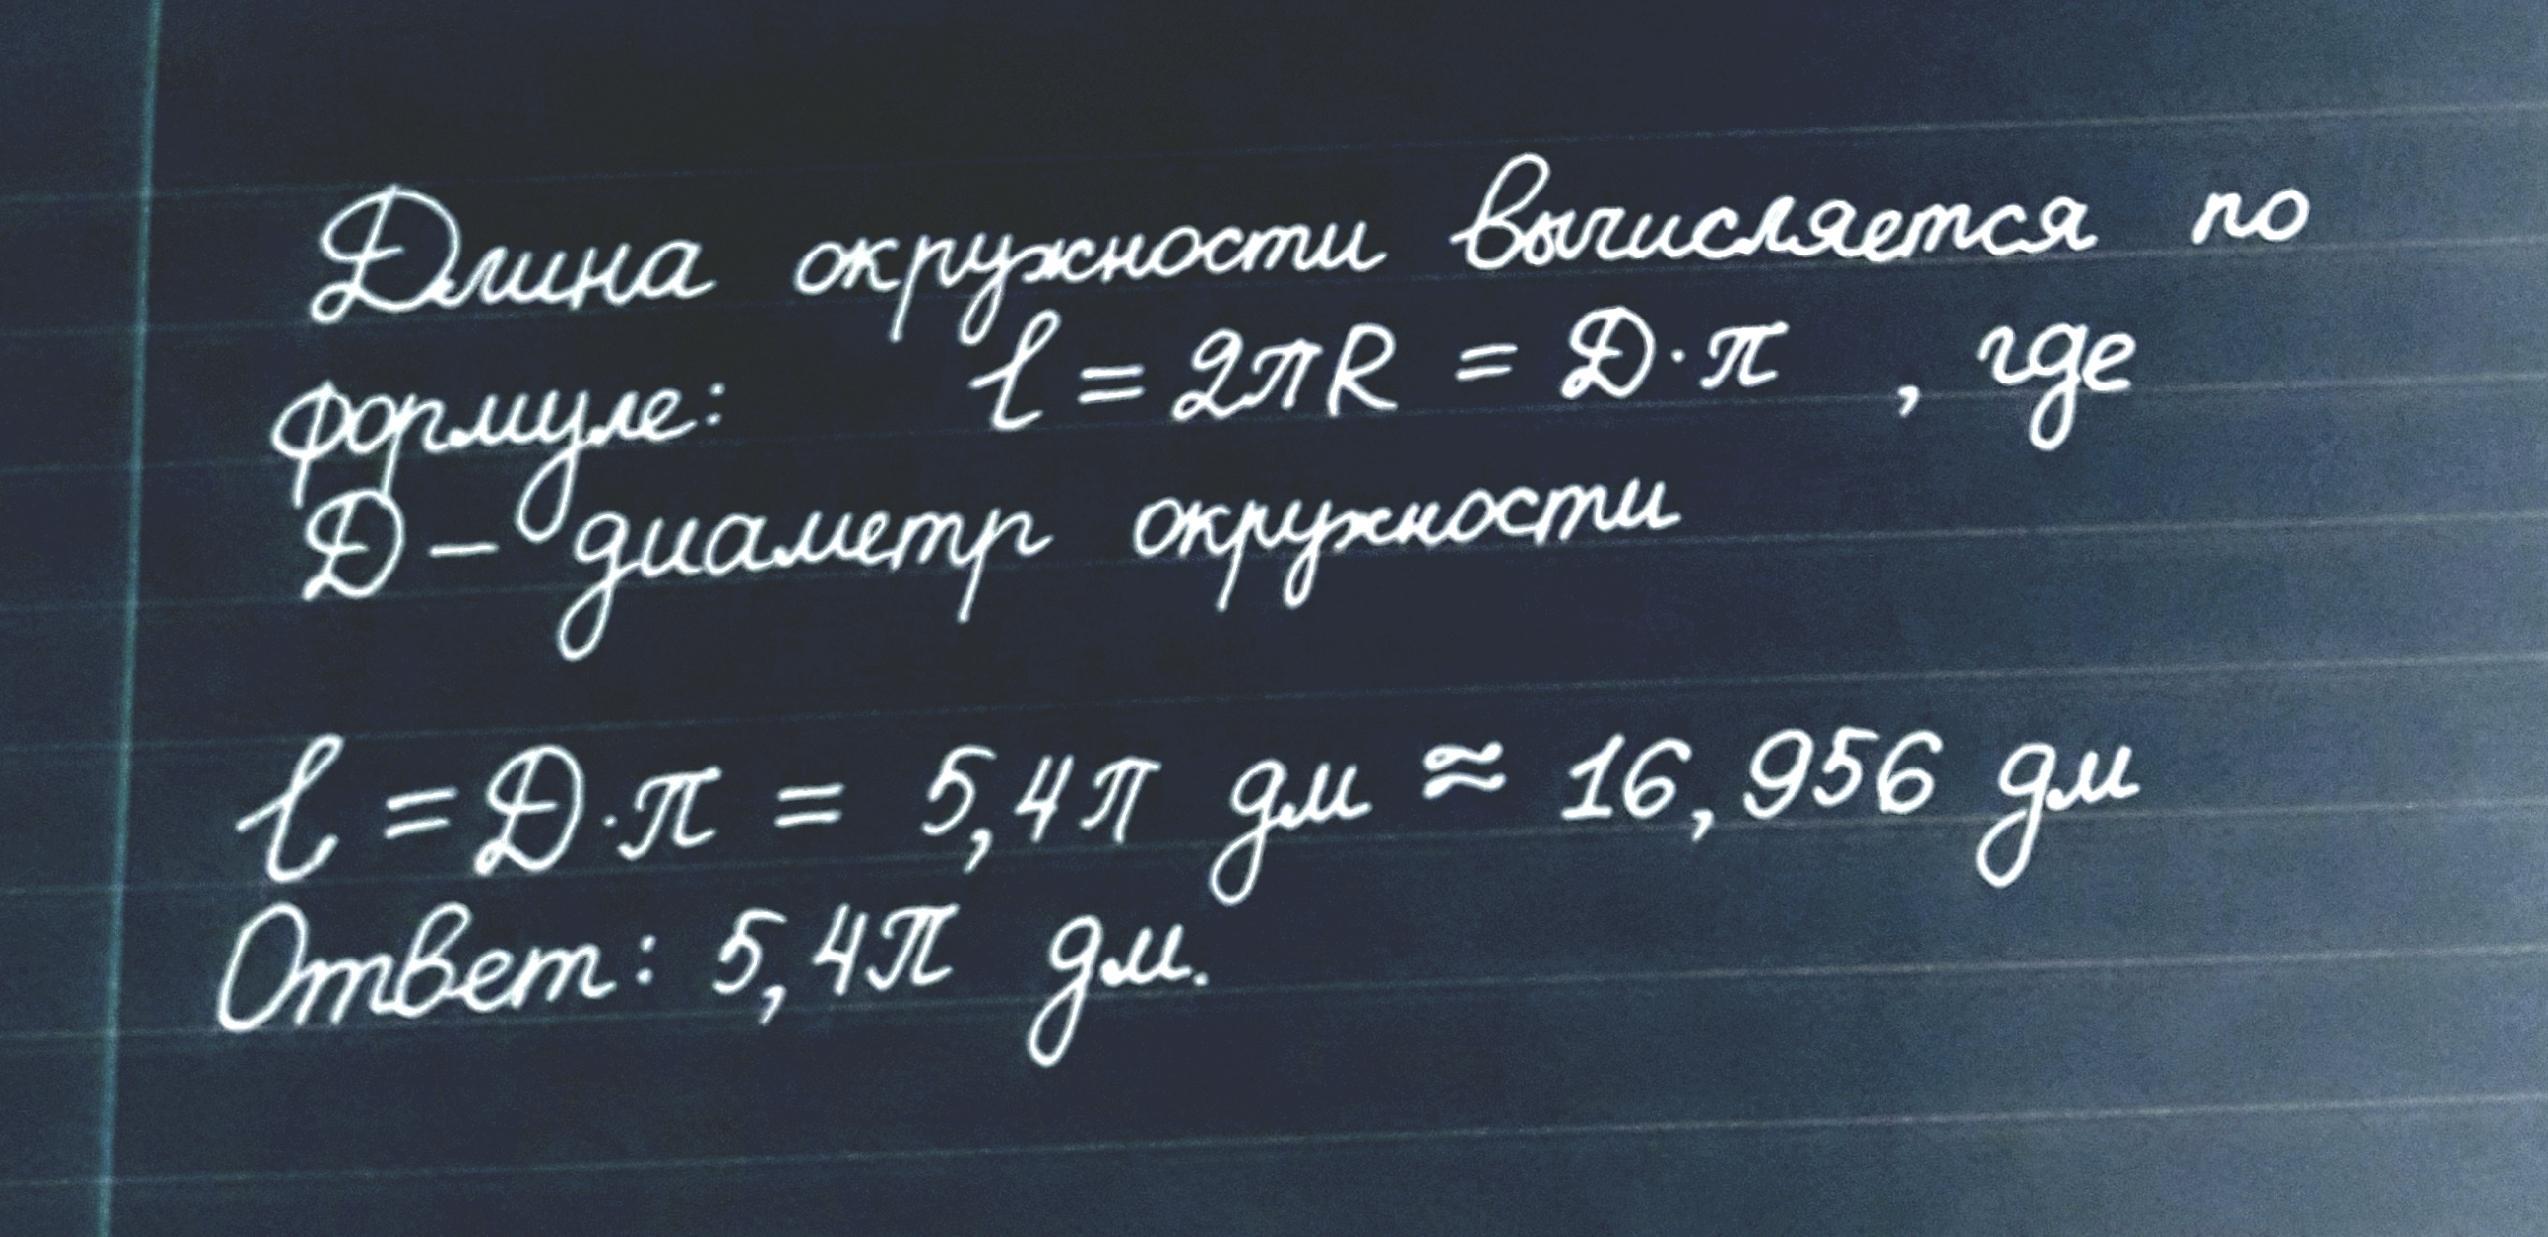 Длина окружности вычисляется по
формуле: l = 2πR = Д·π , где
Д – диаметр окружности
l = Д·π = 5,4π дм ≈ 16,956 дм
Ответ: 5,4π дм.